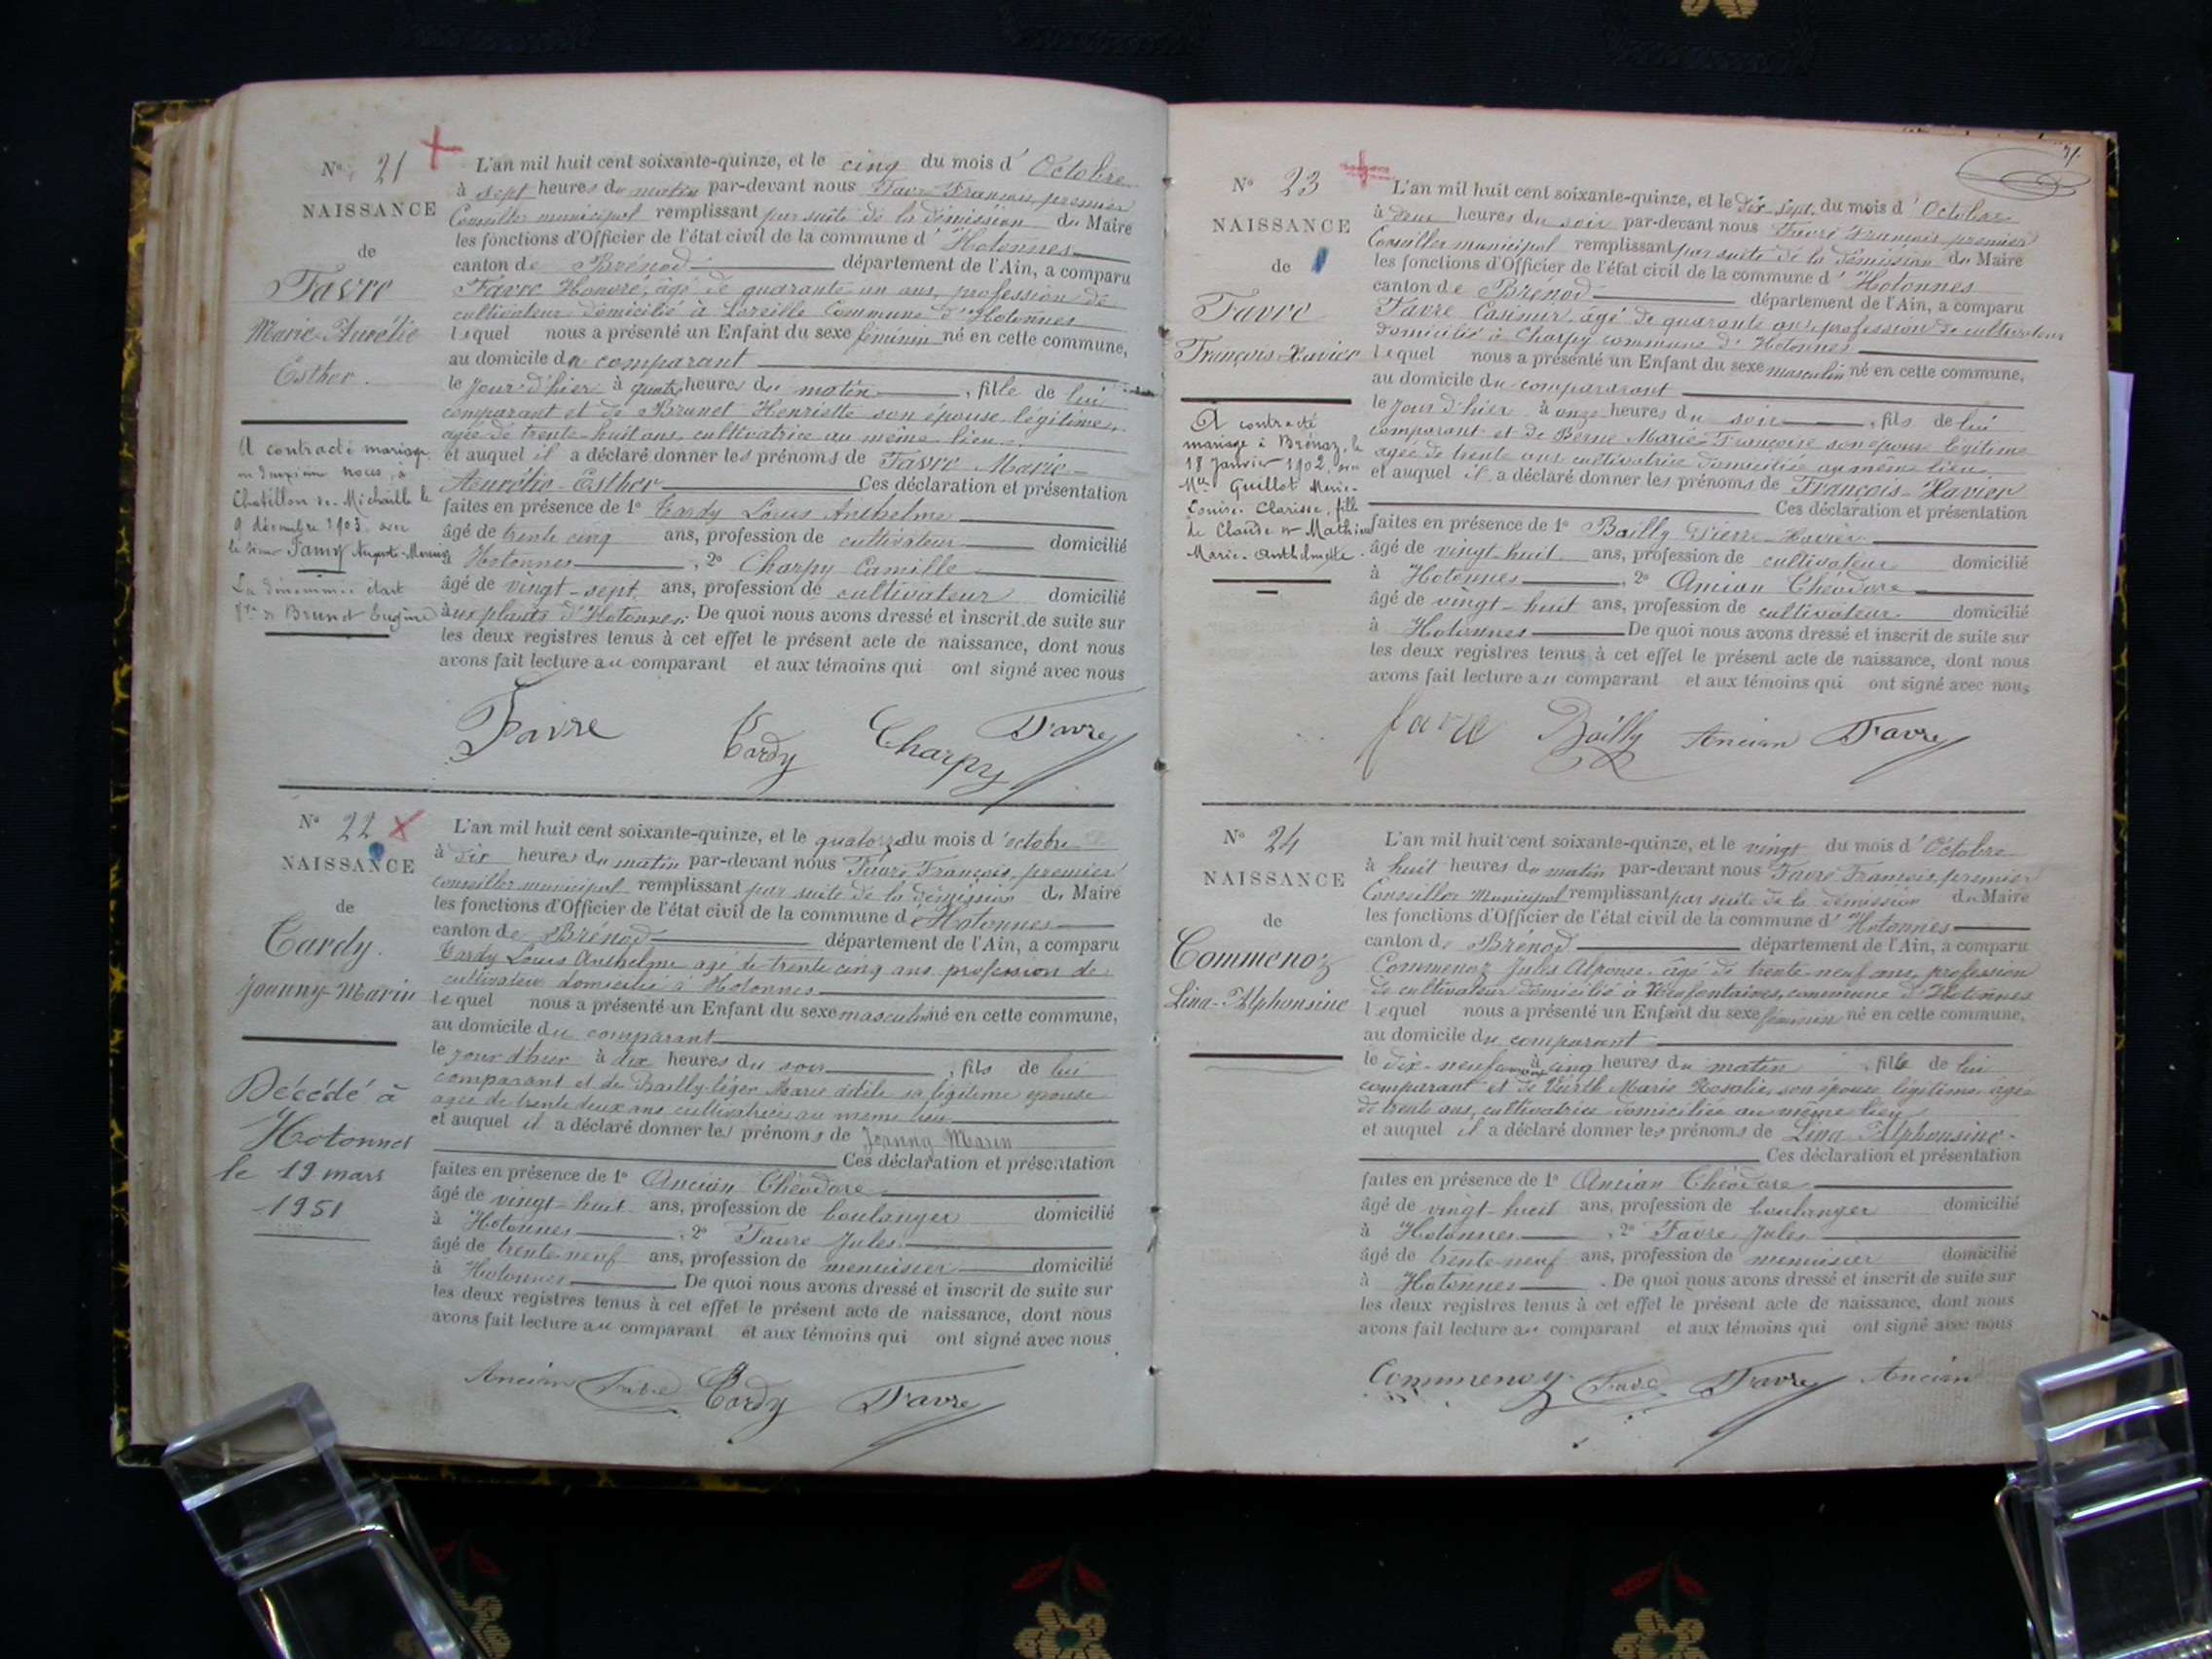 N° 21
NAISSANCE
de
Favre
Marie-Aurélie
Esther.
A contracté mariage
en deuxième noces, à
Chatillon de Michaille le
9 décembre 1903 avec
le sieur Famy Auguste
La dénommée étant
de Brunet Eugène
L'an mil huit cent soixante-quinze, et le cinq du mois d'Octobre
à sept heures du matin par-devant nous Favre François, premier
Conseiller municipal remplissant par suite de la démission du Maire
les fonctions d'Officier de l'état civil de la commune d'Hotonnes
canton de Brénod département de l'Ain, a comparu
Favre Honoré, âgé de quarante un ans, profession de
cultivateur domicilié à Commune d'Hotonnes
lequel nous a présenté un Enfant du sexe féminin né en cette commune,
au domicile du comparant
le jour d'hier à quatre heures du matin, fille de lui
comparant et de Brunet Henriette son épouse légitime,
agée de trente-huit ans, cultivatrice au même lieu.
et auquel il a déclaré donner les prénoms de Favre Marie-
Aurélie-Esther Ces déclaration et présentation
faites en présence de 1° Cardy Louis Anthelme
âgé de trente cinq ans, profession de cultivateur domicilié
à Hotonnes, 2° Charpy Camille
âgé de vingt-sept ans, profession de cultivateur domicilié
aux plans d'Hotonnes. De quoi nous avons dressé et inscrit de suite sur
les deux registres tenus à cet effet le présent acte de naissance, dont nous
avons fait lecture au comparant et aux témoins qui ont signé avec nous
Favre Cardy Charpy Favre
N° 22
NAISSANCE
de
Cardy.
Joanny-Marin
Décédé à
Hotonnes
le 19 mars
1951
L'an mil huit cent soixante-quinze, et le quatorze du mois d'octobre
à dix heures du matin par-devant nous Favre François, premier
conseiller municipal remplissant par suite de la démission du Maire
les fonctions d'Officier de l'état civil de la commune d'Hotonnes
canton de Brénod département de l'Ain, a comparu
Cardy Louis Anthelme agé de trente cinq ans profession de
cultivateur domicilié à Hotonnes
lequel nous a présenté un Enfant du sexe masculin né en cette commune,
au domicile du comparant
le jour d'hier à dix heures du soir, fils de lui
comparant et de Bailly-léger Marie adèle sa légitime épouse
agée de trente deux ans cultivatrice au même lieu
et auquel il a déclaré donner les prénoms de Joanny Marin
Ces déclaration et présentation
faites en présence de 1° Ancian Théodore
âgé de vingt-huit ans, profession de boulanger domicilié
à Hotonnes, 2° Favre Jules
âgé de trente-neuf ans, profession de menuisier domicilié
à Hotonnes De quoi nous avons dressé et inscrit de suite sur
les deux registres tenus à cet effet le présent acte de naissance, dont nous
avons fait lecture au comparant et aux témoins qui ont signé avec nous
Ancian Favre Cardy Favre
N° 23
NAISSANCE
de
Favre
François-Xavier
A contracté
mariage à Brénaz, le
18 Janvier 1902 avec
Guillot Marie-
Louise-Clarisse, fille
de Claude et Mathieu
Marie-Anthelmette.
L'an mil huit cent soixante-quinze, et le dix-sept du mois d'Octobre
à deux heures du soir par-devant nous Favre François premier
Conseiller municipal remplissant par suite de la démission du Maire
les fonctions d'Officier de l'état civil de la commune d'Hotonnes
canton de Brénod département de l'Ain, a comparu
Favre Casimir, âgé de quarante ans, profession de cultivateur
domicilié à Charpy commune d'Hotonnes
lequel nous a présenté un Enfant du sexe masculin né en cette commune,
au domicile du compararant
le jour d'hier à onze heures du soir, fils de lui
comparant et de Berne Marie-Françoise son épouse légitime
agée de trente ans cultivatrice domiciliée au même lieu
et auquel il a déclaré donner les prénoms de François-Xavier
Ces déclaration et présentation
faites en présence de 1° Bailly Pierre-Xavier
âgé de vingt-huit ans, profession de cultivateur domicilié
à Hotonnes, 2° Ancian Théodore
âgé de vingt-huit ans, profession de cultivateur domicilié
à Hotonnes De quoi nous avons dressé et inscrit de suite sur
les deux registres tenus à cet effet le présent acte de naissance, dont nous
avons fait lecture au comparant et aux témoins qui ont signé avec nous
favre Bailly Ancian Favre
N° 24
NAISSANCE
de
Commenoz
Lina-Alphonsine
L'an mil huit cent soixante-quinze, et le vingt du mois d'Octobre
à huit heures du matin par-devant nous Favre François, premier
Conseiller Municipal remplissant par suite de la démission du Maire
les fonctions d'Officier de l'état civil de la commune d'Hotonnes
canton de Brénod département de l'Ain, a comparu
Commenoz Jules Alponse, âgé de trente-neuf ans, profession
de cultivateur domicilié à commune d'Hotonnes
lequel nous a présenté un Enfant du sexe féminin né en cette commune,
au domicile du comparant
le dix-neuf courant à cinq heures du matin, fille de lui
comparant et de Marie Rosalie, son épouse légitime, agée
de trente ans, cultivatrice domiciliée au même lieu
et auquel il a déclaré donner les prénoms de Lina Alphonsine.
Ces déclaration et présentation
faites en présence de 1° Ancian Théodore
âgé de vingt-huit ans, profession de boulanger domicilié
à Hotonnes, 2° Favre Jules
âgé de trente-neuf ans, profession de menuisier domicilié
à Hotonnes. De quoi nous avons dressé et inscrit de suite sur
les deux registres tenus à cet effet le présent acte de naissance, dont nous
avons fait lecture au comparant et aux témoins qui ont signé avec nous
Commenoz Favre Favre Ancian